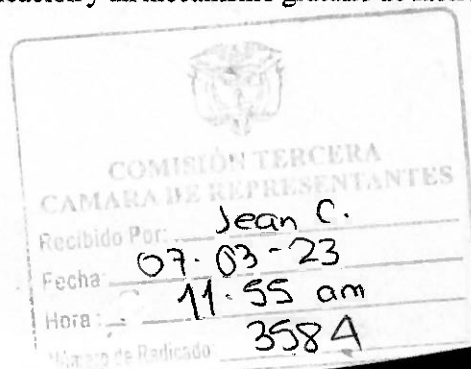 un mecanismo gratuito de
COMISIÓN TERCERA
CAMARA DE REPRESENTANTES
Recibido Por: Jean C.
Fecha: 07-03-23
Hora: 11:55 am
Número de Radicado: 3584